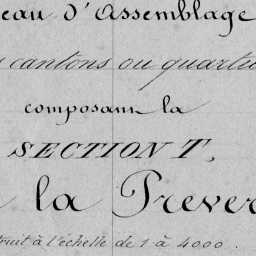 eau d'Assemblage
cantons ou quartie
composant la
SECTION T,
la Prever
truit à l'échelle de 1 à 4000.